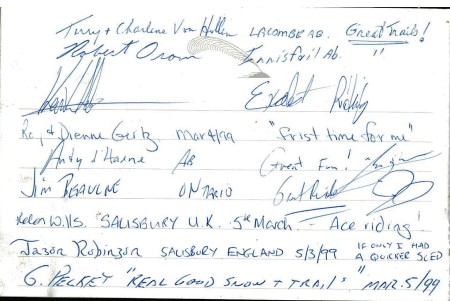 Terry + Charlene Von Hollen LACOMBE AB. Great Trails!
Robert Orom Innisfail Ab. "
Excelent Riding
& Dienne Geitz Mar 4/99 "First time for me"
Andy d'Haene AB Great Fun!
Jim BEAULNE ONTARIO Great Ride
Helen Wills. SALISBURY U.K. 5th March - Ace riding!
Jason Robinson SALISBURY ENGLAND 5/3/99 IF ONLY I HAD A QUICKER SLED
G. PECKEY "REAL GOOD SNOW + TRAILS" MAR. 5/99